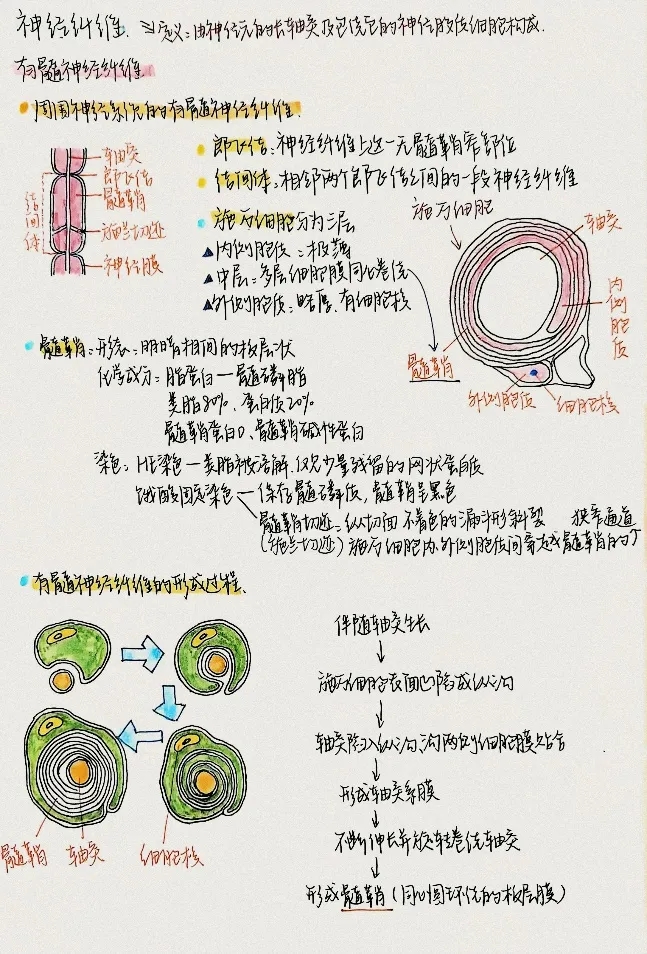 神经纤维. 定义:由神经元的长轴突及包绕它的神经胶质细胞构成.
有髓神经纤维
周围神经系统的有髓神经纤维.
轴突
郎飞结
髓鞘
结间体
施兰切迹
神经膜
郎飞结:神经纤维上这一无髓鞘窄部位
结间体:相邻两个郎飞结之间的一段神经纤维
施万细胞分为三层
▲内侧胞质:极薄
▲中层:多层细胞膜同心卷绕
▲外侧胞质:略厚,有细胞核
施万细胞
轴突
内侧胞质
髓鞘
外侧胞质
细胞核
髓鞘:形态:明暗相间的板层状
化学成分:脂蛋白—髓磷脂
类脂80%、蛋白质20%
髓鞘蛋白0、髓鞘碱性蛋白
染色:HE染色—类脂被溶解,仅见少量残留的网状蛋白质
锇酸固定染色—保存髓磷脂,髓鞘呈黑色
髓鞘切迹:纵切面不着色的漏斗形斜裂 狭窄通道
(施兰切迹) 施万细胞内、外侧胞质间穿越髓鞘的个
有髓神经纤维的形成过程.
髓鞘
轴突
细胞核
伴随轴突生长
↓
施万细胞表面凹陷成纵沟
↓
轴突陷入纵沟,沟两侧细胞膜贴合
↓
形成轴突系膜
↓
不断伸长并旋转卷绕轴突
↓
形成髓鞘(同心圆环绕的板层膜)